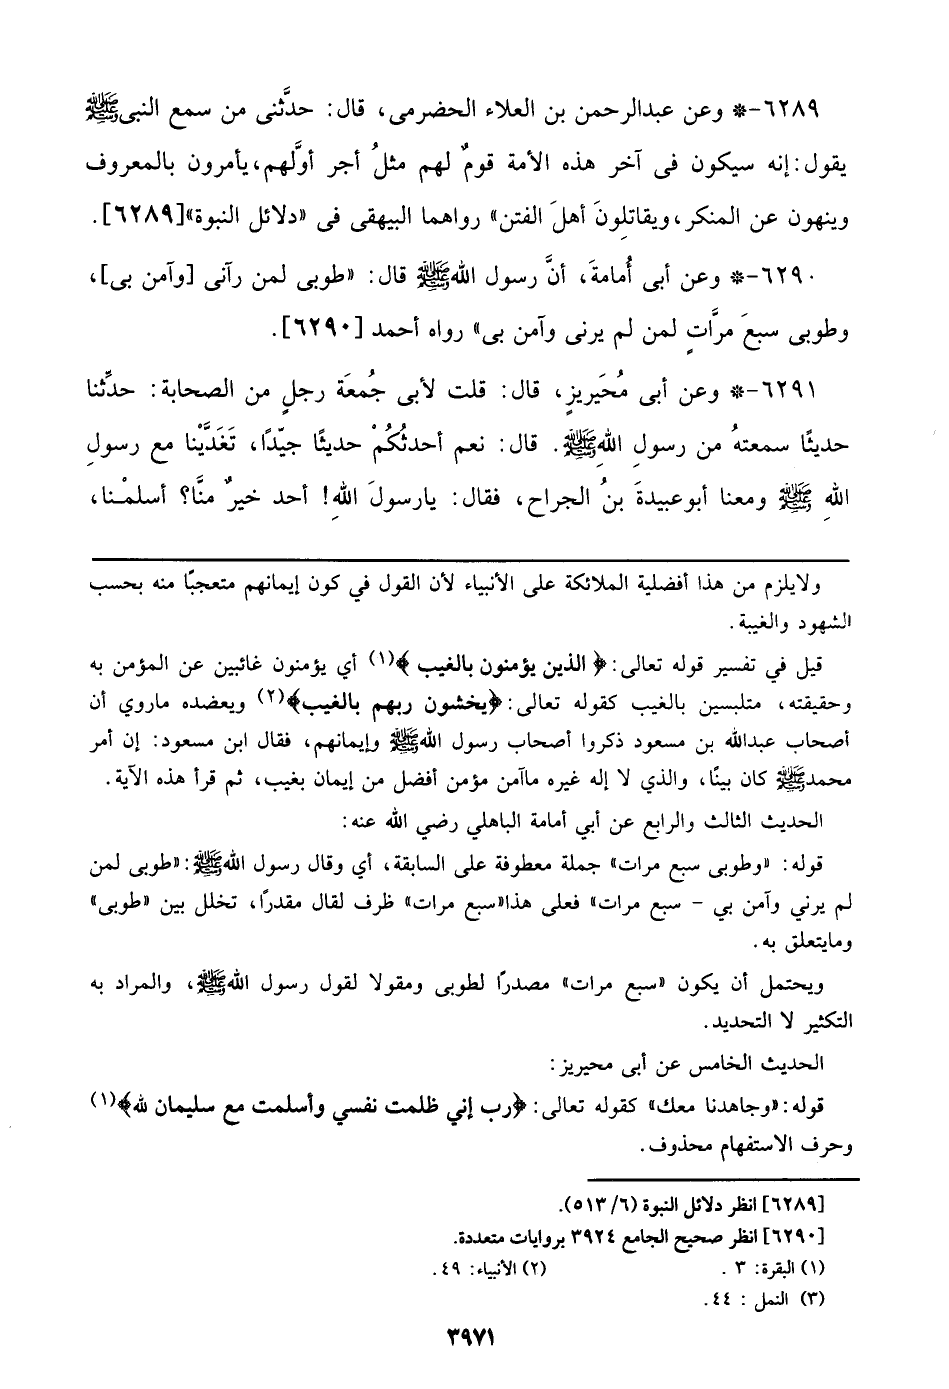 ٦٢٨٩-* وعن عبدالرحمن بن العلاء الحضرمى، قال: حدَّثنى من سمع النبى ﷺ
يقول: إنه سيكون فى آخر هذه الأمة قومٌ لهم مثلُ أجر أوَّلهم، يأمرون بالمعروف
وينهون عن المنكر، ويقاتلونَ أهلَ الفتن» رواهما البيهقى فى «دلائل النبوة»[٦٢٨٩].
٦٢٩٠-* وعن أبى أُمامةَ، أنَّ رسول الله ﷺ قال: «طوبى لمن رآنى [وآمن بى]،
وطوبى سبعَ مرَّاتٍ لمن لم يرنى وآمن بى» رواه أحمد [٦٢٩٠].
٦٢٩١-* وعن أبى مُحَيريزٍ، قال: قلت لأبى جُمعَة رجلٍ من الصحابة: حدِّثنا
حديثًا سمعتهُ من رسولِ اللهِ ﷺ. قال: نعم أحدثُكُمْ حديثًا جيّدًا، تَغَدَّيْنا مع رسولِ
اللهِ ﷺ ومعنا أبوعبيدةَ بنُ الجراح، فقال: يارسولَ اللهِ! أحد خيرٌ منَّا؟ أسلمْنا،
ولايلزم من هذا أفضلية الملائكة على الأنبياء لأن القول في كون إيمانهم متعجبًا منه بحسب
الشهود والغيبة.
قيل في تفسير قوله تعالى: ﴿ الذين يؤمنون بالغيب ﴾(١) أي يؤمنون غائبين عن المؤمن به
وحقيقته، متلبسين بالغيب كقوله تعالى: ﴿يخشون ربهم بالغيب﴾(٢) ويعضده ماروي أن
أصحاب عبدالله بن مسعود ذكروا أصحاب رسول الله ﷺ وإيمانهم، فقال ابن مسعود: إن أمر
محمد ﷺ كان بينًا، والذي لا إله غيره ماآمن مؤمن أفضل من إيمان بغيب، ثم قرأ هذه الآية.
الحديث الثالث والرابع عن أبي أمامة الباهلي رضي الله عنه:
قوله: «وطوبى سبع مرات» جملة معطوفة على السابقة، أي وقال رسول الله ﷺ: «طوبى لمن
لم يرني وآمن بي - سبع مرات» فعلى هذا«سبع مرات» ظرف لقال مقدرًا، تخلل بين «طوبى»
ومايتعلق به.
ويحتمل أن يكون «سبع مرات» مصدرًا لطوبى ومقولا لقول رسول الله ﷺ، والمراد به
التكثير لا التحديد.
الحديث الخامس عن أبى محيريز:
قوله: «وجاهدنا معك» كقوله تعالى: ﴿رب إني ظلمت نفسي وأسلمت مع سليمان لله﴾(١)
وحرف الاستفهام محذوف.
[٦٢٨٩] انظر دلائل النبوة (٦/ ٥١٣).
[٦٢٩٠] انظر صحيح الجامع ٣٩٢٤ بروايات متعددة.
(١) البقرة: ٣ . (٢) الأنبياء: ٤٩.
(٣) النمل : ٤٤.
٣٩٧١